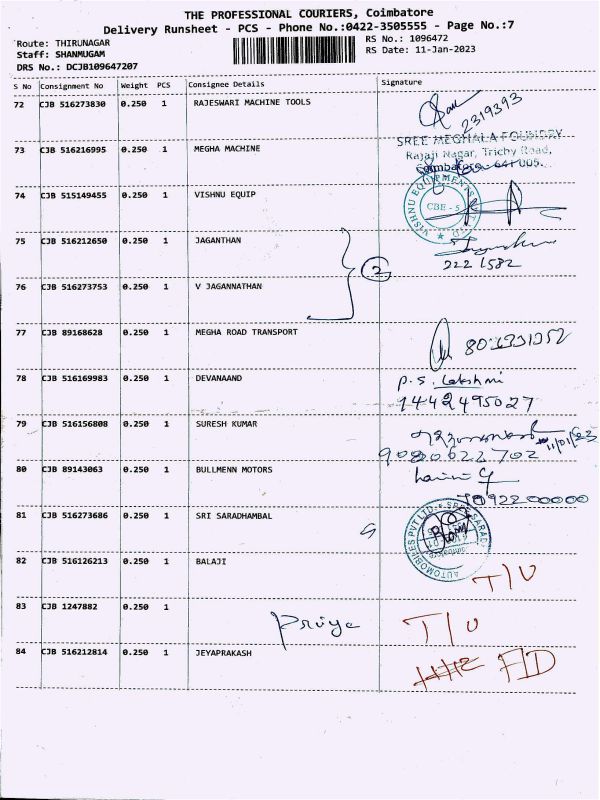 THE PROFESSIONAL COURIERS, Coimbatore
Delivery Runsheet - PCS - Phone No.:0422-3505555 - Page No.:7
Route: THIRUNAGAR
Staff: SHANMUGAM
DRS No.: DCJB109647207
RS No.: 1096472
RS Date: 11-Jan-2023
S No Consignment No Weight PCS Consignee Details Signature
72 CJB 516273830 0.250 1 RAJESWARI MACHINE TOOLS
2319393
73 CJB 516216995 0.250 1 MEGHA MACHINE
SREE MEGHALA FOUNDRY
Rajaji Nagar, Trichy Road,
Coimbatore - 641 005.
74 CJB 515149455 0.250 1 VISHNU EQUIP
VISHNU EQUIPMENTS PVT LTD
CBE - 5
75 CJB 516212650 0.250 1 JAGANTHAN
2221582
2
76 CJB 516273753 0.250 1 V JAGANNATHAN
77 CJB 89168628 0.250 1 MEGHA ROAD TRANSPORT
78 CJB 516169983 0.250 1 DEVANAAND
P.S. Lakshmi
9442495027
79 CJB 516156808 0.250 1 SURESH KUMAR
11/01/23
9080622702
80 CJB 89143063 0.250 1 BULLMENN MOTORS
7092200000
81 CJB 516273686 0.250 1 SRI SARADHAMBAL
AUTOMOBILES PVT LTD
82 CJB 516126213 0.250 1 BALAJI
T/U
83 CJB 1247882 0.250 1
Priya T/U
84 CJB 516212814 0.250 1 JEYAPRAKASH